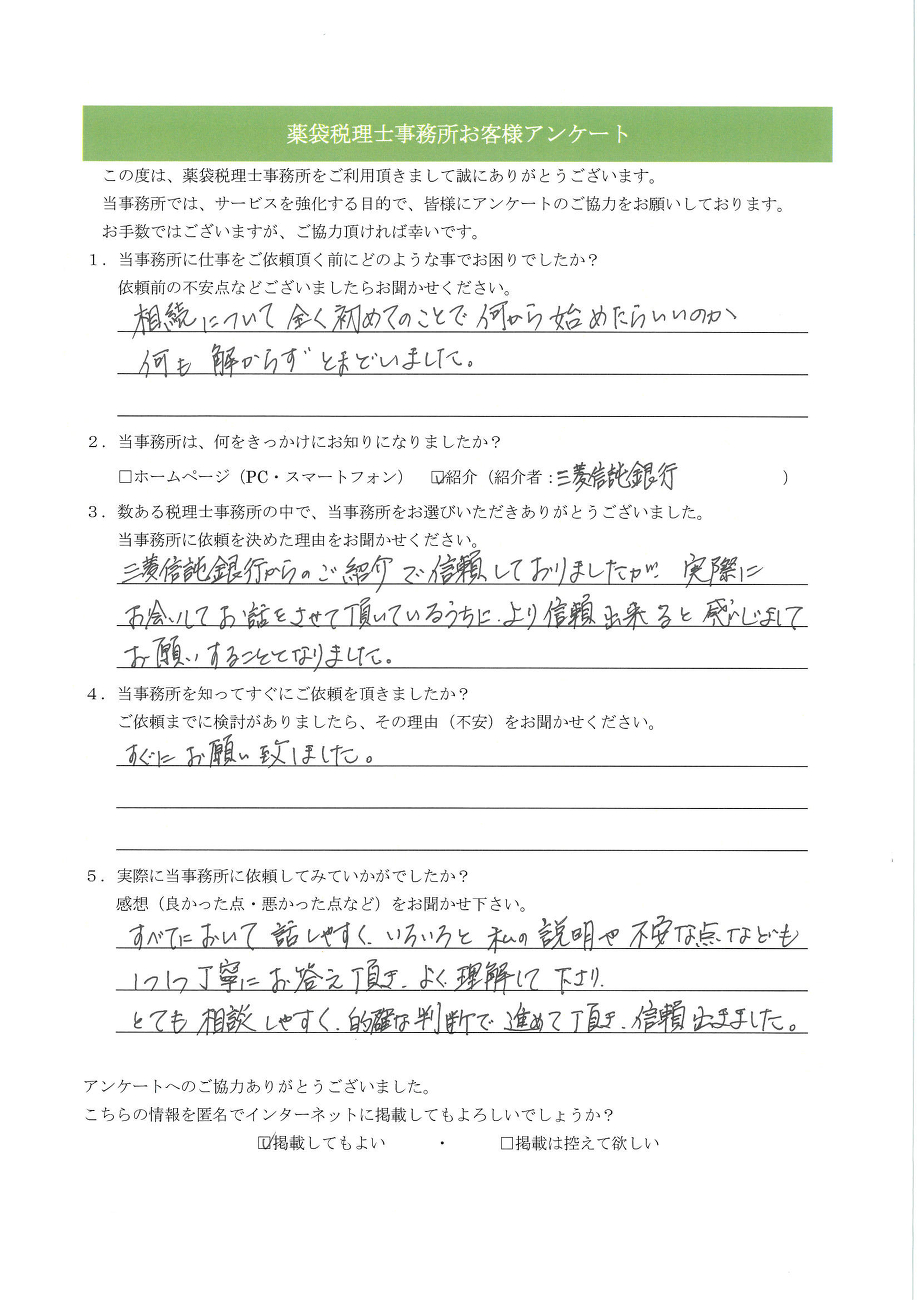 薬袋税理士事務所お客様アンケート
この度は、薬袋税理士事務所をご利用頂きまして誠にありがとうございます。
当事務所では、サービスを強化する目的で、皆様にアンケートのご協力をお願いしております。
お手数ではございますが、ご協力頂ければ幸いです。
１．当事務所に仕事をご依頼頂く前にどのような事でお困りでしたか？
依頼前の不安点などございましたらお聞かせください。
相続について全く初めてのことで何から始めたらいいのか
何も解からずとまどいました。
２．当事務所は、何をきっかけにお知りになりましたか？
□ホームページ（PC・スマートフォン）　☑紹介（紹介者：三菱信託銀行　　　　　）
３．数ある税理士事務所の中で、当事務所をお選びいただきありがとうございました。
当事務所に依頼を決めた理由をお聞かせください。
三菱信託銀行からのご紹介で信頼しておりましたが、実際に
お会いしてお話をさせて頂いているうちに、より信頼出来ると感いじまして
お願いすることとなりました。
４．当事務所を知ってすぐにご依頼を頂きましたか？
ご依頼までに検討がありましたら、その理由（不安）をお聞かせください。
すぐにお願い致しました。
５．実際に当事務所に依頼してみていかがでしたか？
感想（良かった点・悪かった点など）をお聞かせ下さい。
すべてにおいて話しやすく、いろいろと私の説明や不安な点なども
1つ1つ丁寧にお答え頂き、よく理解して下さり、
とても相談しやすく、的確な判断で進めて頂き、信頼出来ました。
アンケートへのご協力ありがとうございました。
こちらの情報を匿名でインターネットに掲載してもよろしいでしょうか？
☑掲載してもよい　　・　　□掲載は控えて欲しい